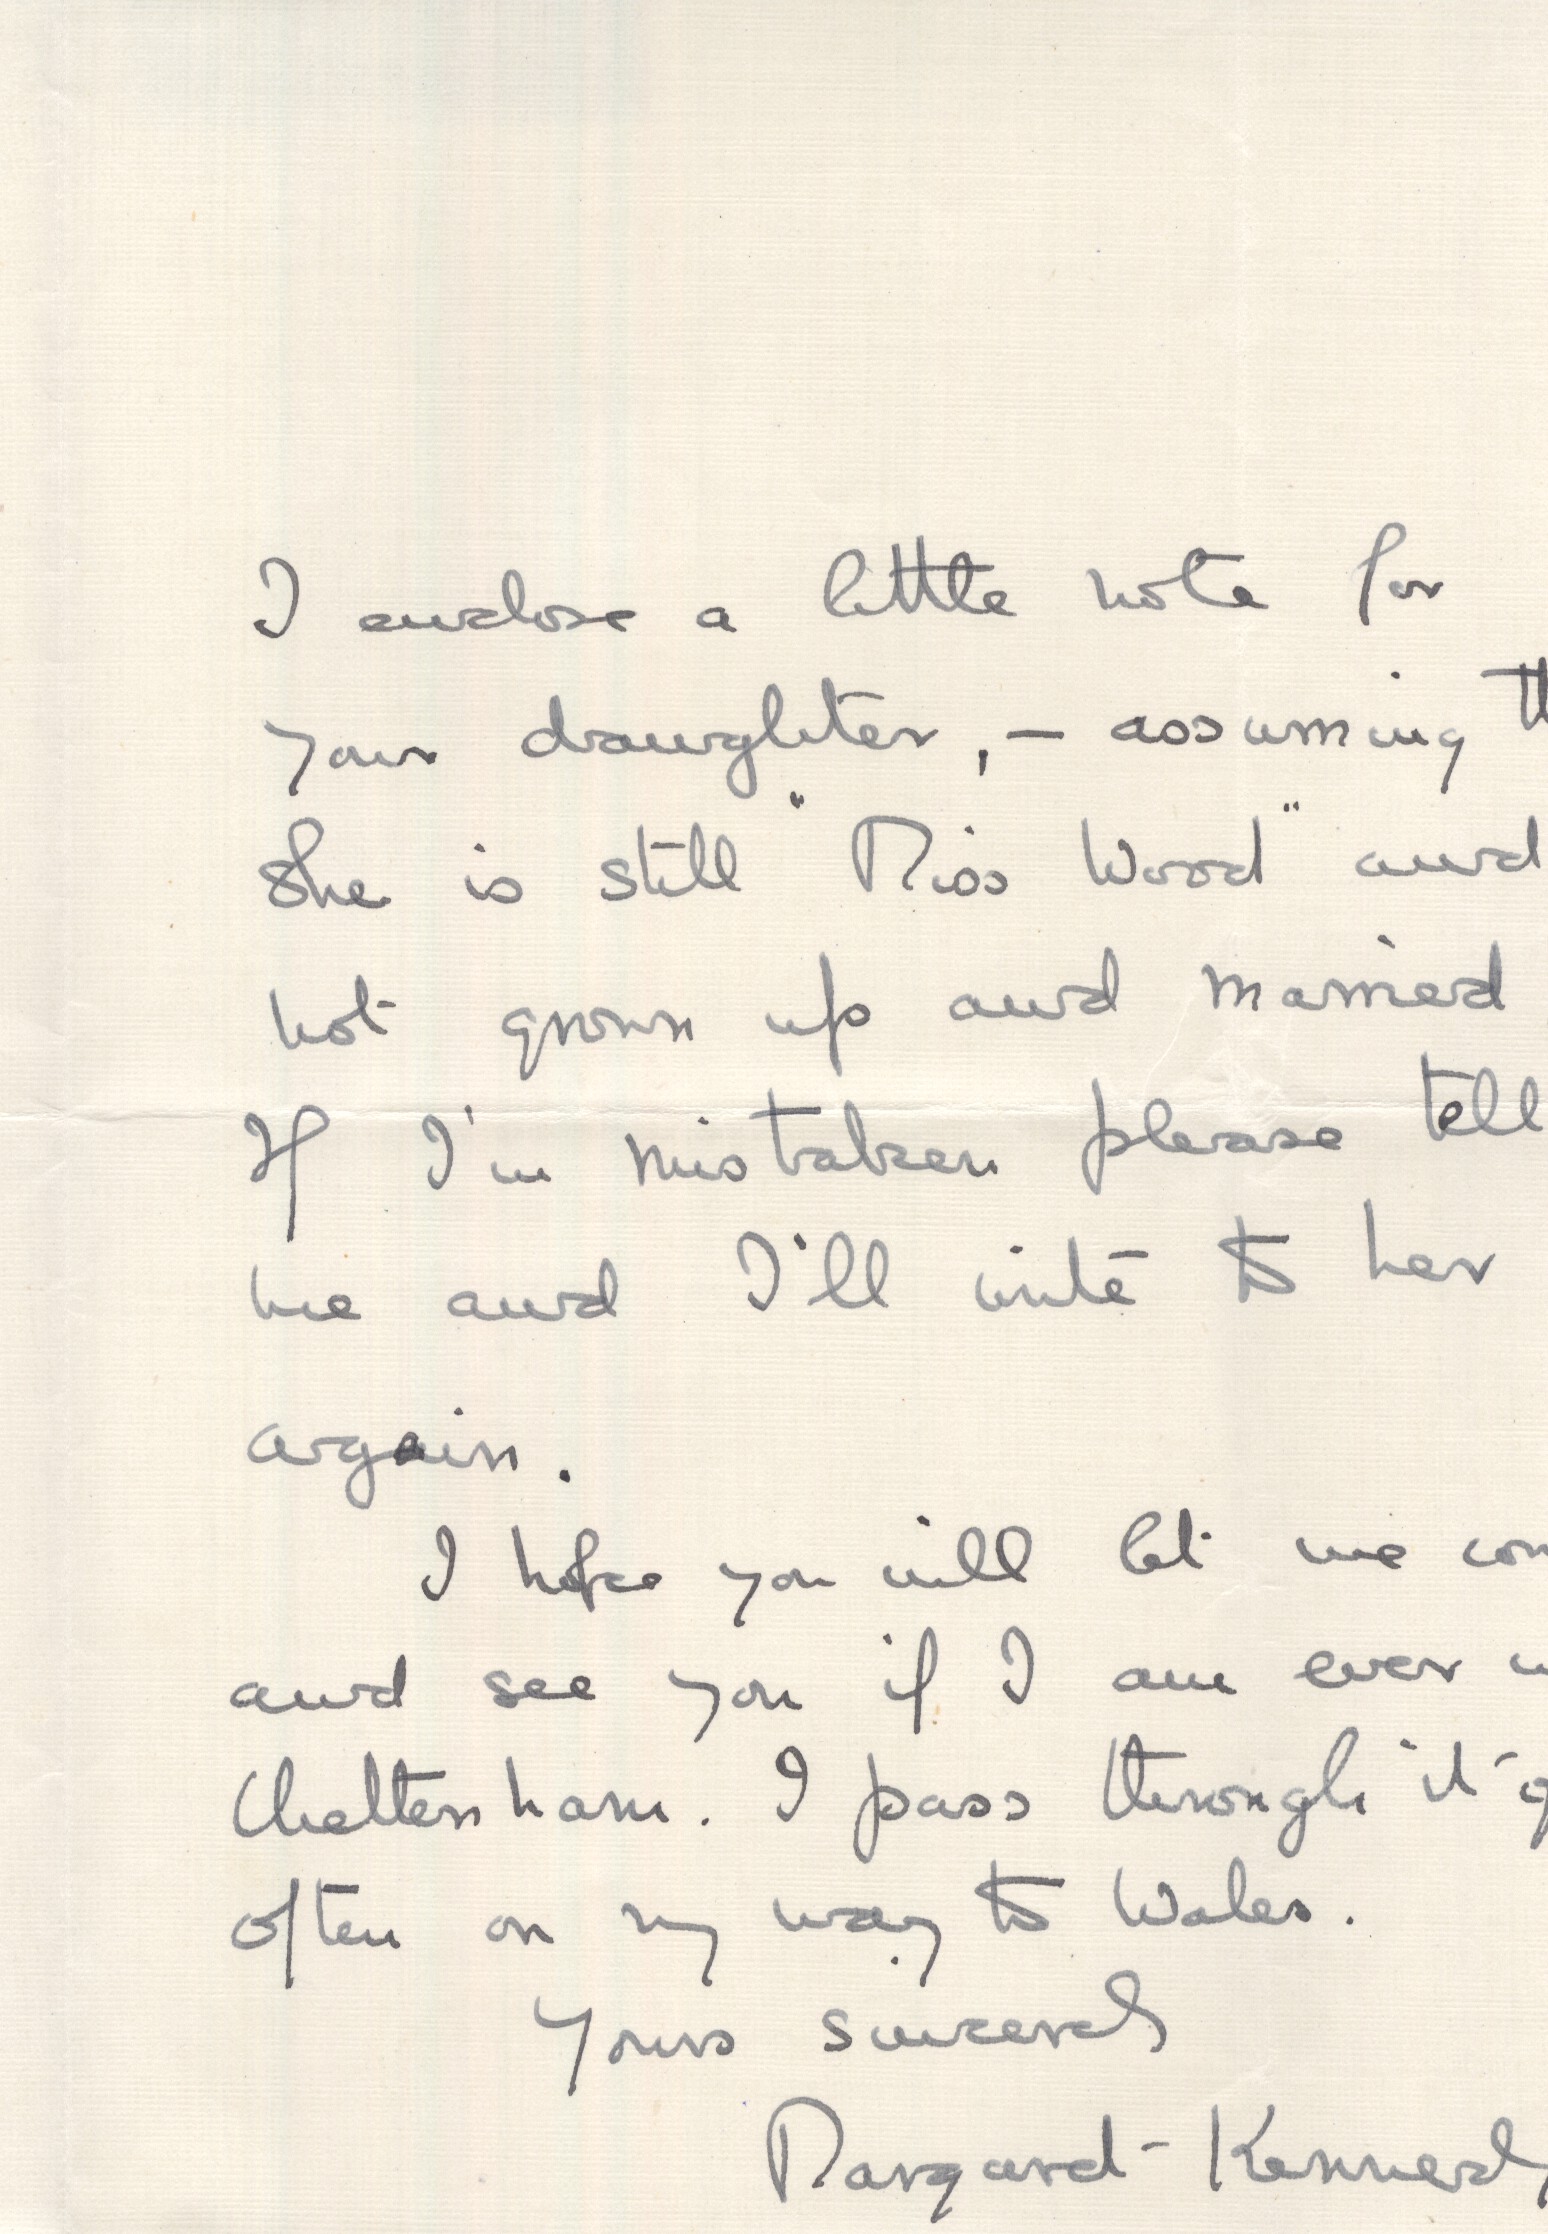 I enclose a little note for
your daughter, – assuming th
she is still "Miss Wood" and
not grown up and married
If I'm mistaken please tell
me and I'll write to her
again.
I hope you will let me com
and see you if I am ever
Cheltenham. I pass through it q
often on my way to Wales.
Yours sincerely
Margaret Kennedy